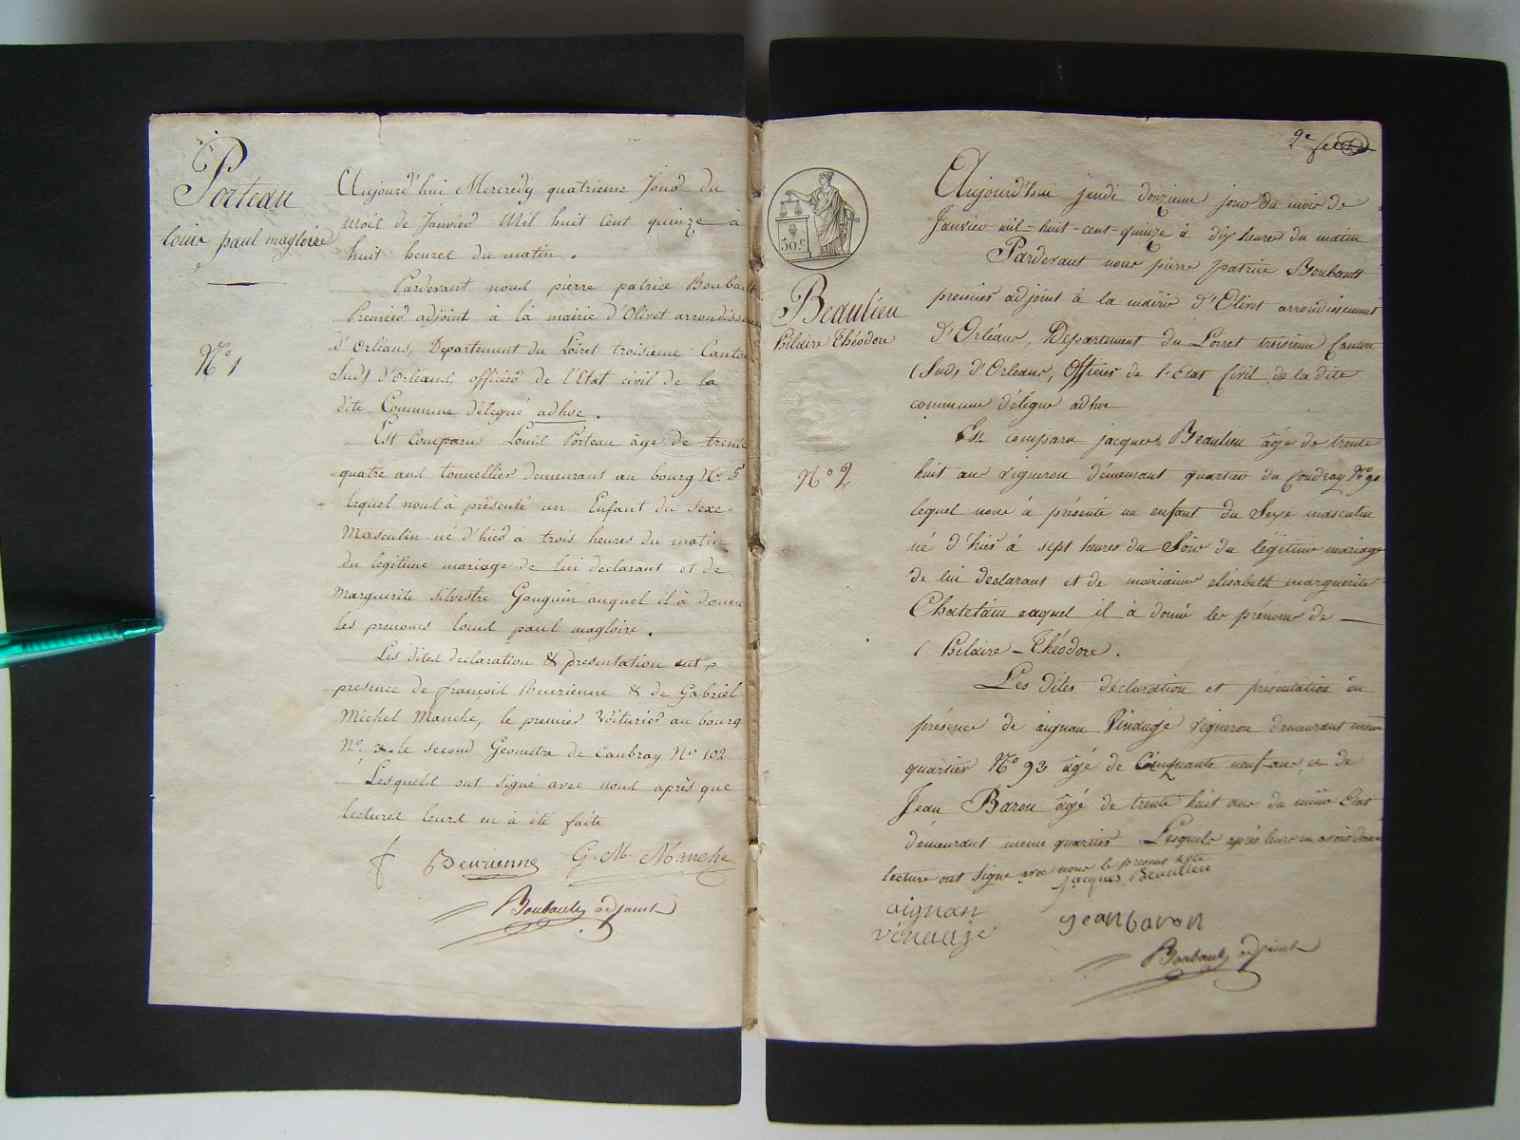 Porteau
louis paul magloire
N° 1
Aujourd'hui Mercredy quatrieme Jour du
Mois de Janvier Mil huit Cent quinze à
huit heures du matin.
Pardevant nous pierre patrice Boubault
Premier adjoint à la mairie d'Olivet arrondissement
d'Orléans, Departement du Loiret troisieme Canton
(Sud) d'Orleans, officier de l'Etat civil de la
dite Commune délegué adhoc.
Est Comparu Louis Porteau âge de trente
quatre ans tonnellier demeurant au bourg N° 5
lequel nous à présenté un Enfant du Sexe
Masculin né d'hier a trois heures du matin
du légitime mariage de lui declarant et de
Marguerite Silvestre Gauguin auquel il à donné
les prenoms louis paul magloire.
Les dites declaration & presentation en
presence de françois Beurienne & de Gabriel
Michel Manche, le premier Voiturier au bourg
N° le second Geometre de Caubray N° 102
Lesquels ont signé avec nous après que
lectures leurs en à été faite
Beurienne G. M. Manche
Boubault adjoint
2e
30 c
Beaulieu
hilaire théodore
N° 2
Aujourd'hui jeudi douzieme jour du mois de
Janvier mil-huit-cent-quinze à dix heures du matin
Pardevant nous pierre patrice Boubault
premier adjoint à la mairie d'Olivet arrondissement
d'Orléans, Département du Loiret troisieme Canton
(Sud) d'Orleans, Officier de l'Etat Civil de la dite
commune délégué adhoc
Est comparu jacques Beaulieu âgé de trente
huit ans vigneron démeurant quartier du Coudray N° 90
lequel nous à présenté un enfant du Sexe masculin
né d'hier à sept heures du Soir du légitime mariage
de lui declarant et de marianne elisabeth marguerite
Chatelain auquel il à donné les prénoms de
hilaire - théodore.
Les dites déclaration et présentation en
présence de aignan Vinauge vigneron demeurant même
quartier N° 93 âgé de Cinquante neuf ans et de
Jean Baron âgé de trente huit ans du même Etat
démeurant même quartier Lesquels après leur en avoir donné
lecture ont signe avec nous le present acte
jacques Beaulieu
aignan
vinauje
jean baron
Boubault adjoint